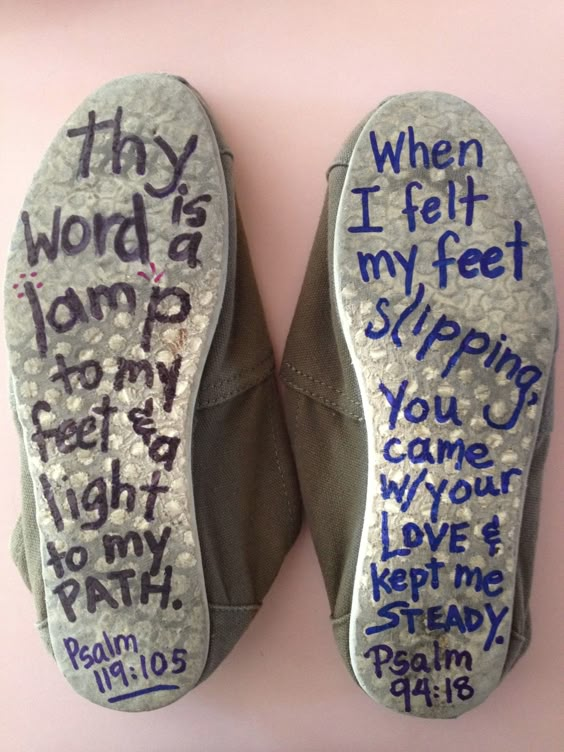 Thy
is
word a
lamp
to my
feet & a
light
to my
PATH.
Psalm
119:105
When
I felt
my feet
slipping,
you
came
w/your
LOVE &
kept me
STEADY.
Psalm
94:18